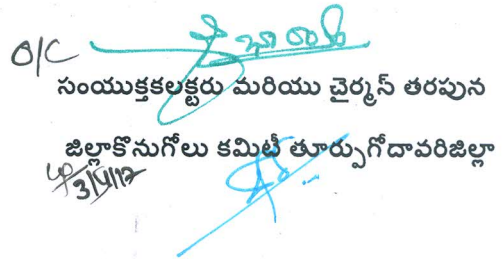 O/C
సంయుక్తకలక్టరు మరియు చైర్మన్ తరపున
జిల్లాకొనుగోలు కమిటీ తూర్పుగోదావరిజిల్లా
3/4/17